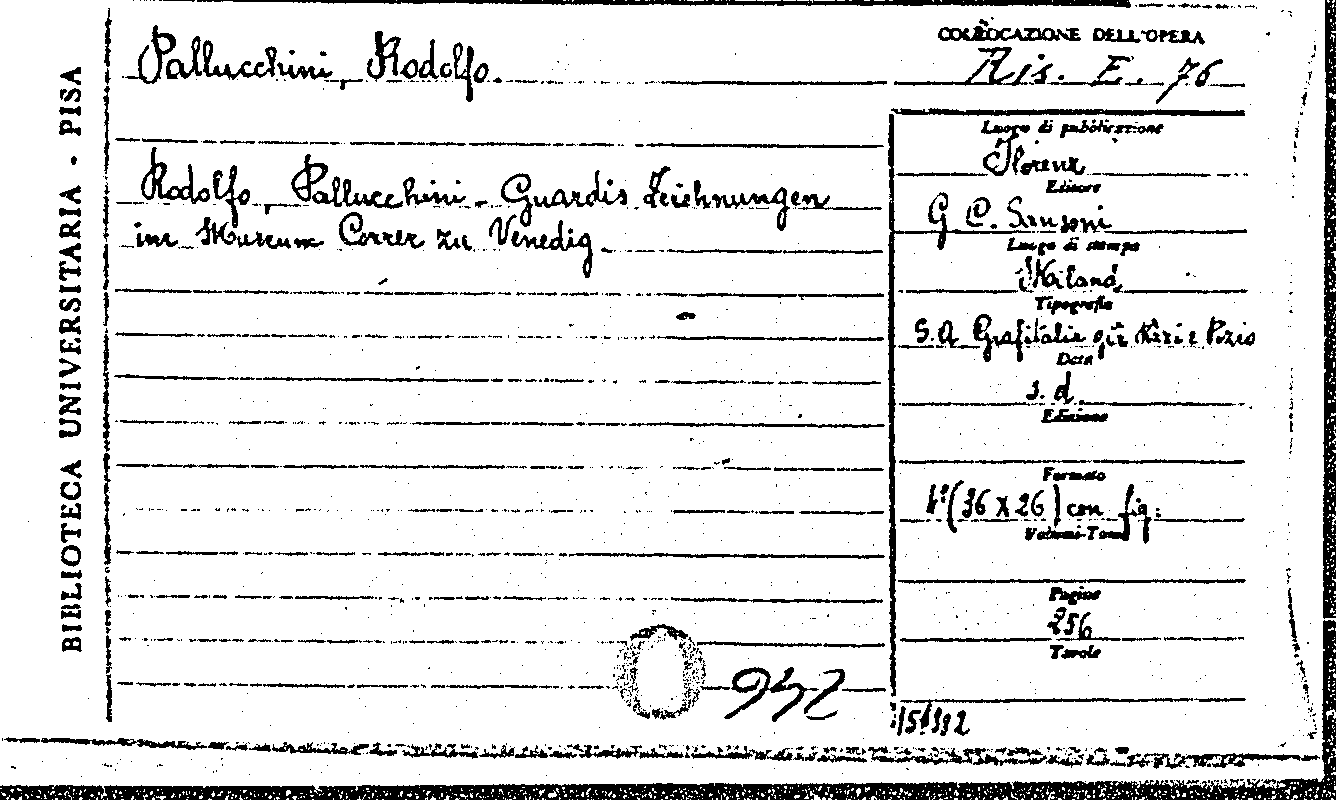 BIBLIOTECA UNIVERSITARIA - PISA
Pallucchini, Rodolfo.
Rodolfo, Pallucchini - Guardis Zeichnungen
im Museum Correr zu Venedig.
COLLOCAZIONE DELL'OPERA
Ris. E. 76
Luogo di pubblicazione
Florenz
Editore
G. C. Sansoni
Luogo di stampa
Mailand
Tipografia
S.A Grafitalia già Pizzi e Pizio
Data
s. d.
Edizione
Formato
4º (36 X 26) con fig.
Volumi-Tomi
Pagine
256
Tavole
942